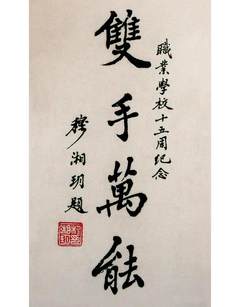 職業學校十五周紀念
雙手萬能
穆湘玥題